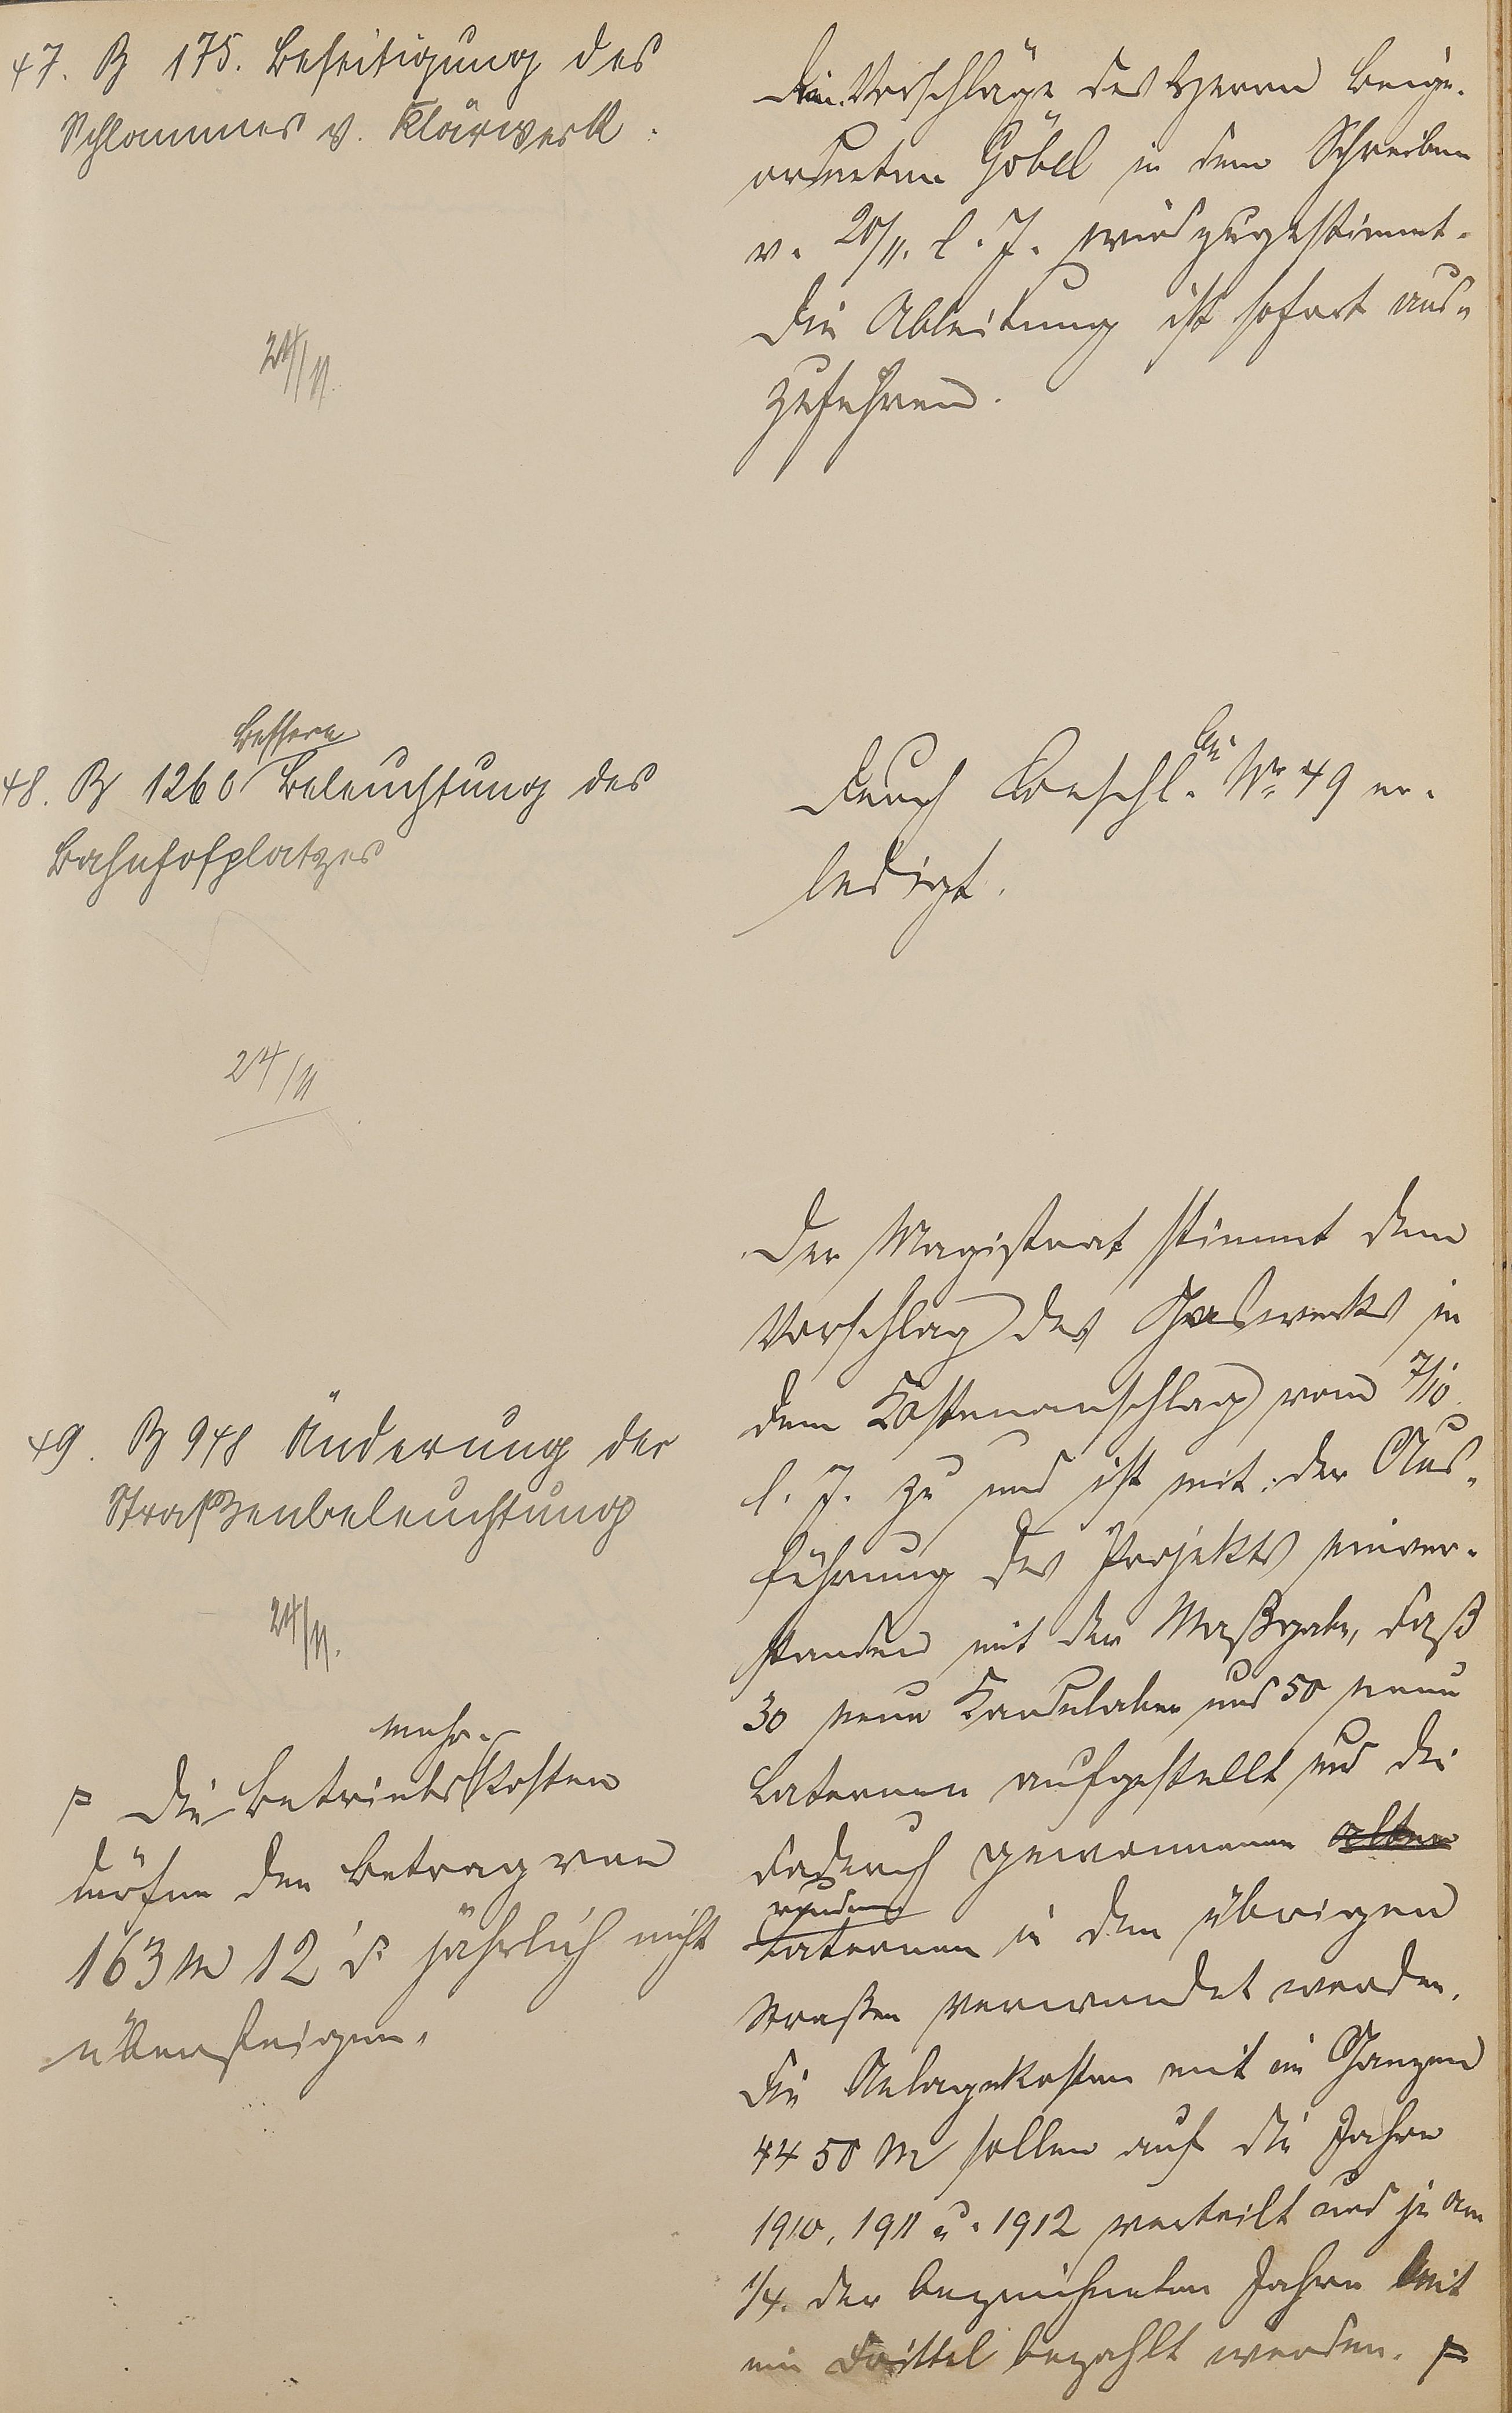 47. B 175. Beseitigung des
Schlammes v. Klärwerk.
24/11.
Den Vorschläge des Herrn Beige-
ordneten Göbel in dem Schreiben
v. 20/11. l. J. wird zugestimmt.
Die Ableitung ist sofort aus-
zuführen.
bessere
48. B 1260 Beleuchtung des
Bahnhofplatzes
24/11
bei
Durch Beschl. Nr. 49 er-
ledigt.
49. B 948 Änderung der
Straßenbeleuchtung
24/11.
mehr-
Die Betriebskosten
dürfen den Betrag von
163 M 12 d jährlich nicht
übersteigen.
Der Magistrat stimmt dem
Vorschlag des Gaswerks in
dem Kostenanschlag vom 7/10.
l. J. zu und ist mit der Aus-
führung des Projekts einver-
standen mit der Maßgabe, daß
30 neue Kandelaber und 50 neue
Laternen aufgestellt und die
dadurch gewonnenen alten
runden
Laternen in den übrigen
Straßen verwendet werden.
Die Anlagekosten mit im Ganzen
4450 M sollen auf die Jahre
1910, 1911 u. 1912 verteilt und je am
1/4. der bezeichneten Jahre mit
ein Drittel bezahlt werden.